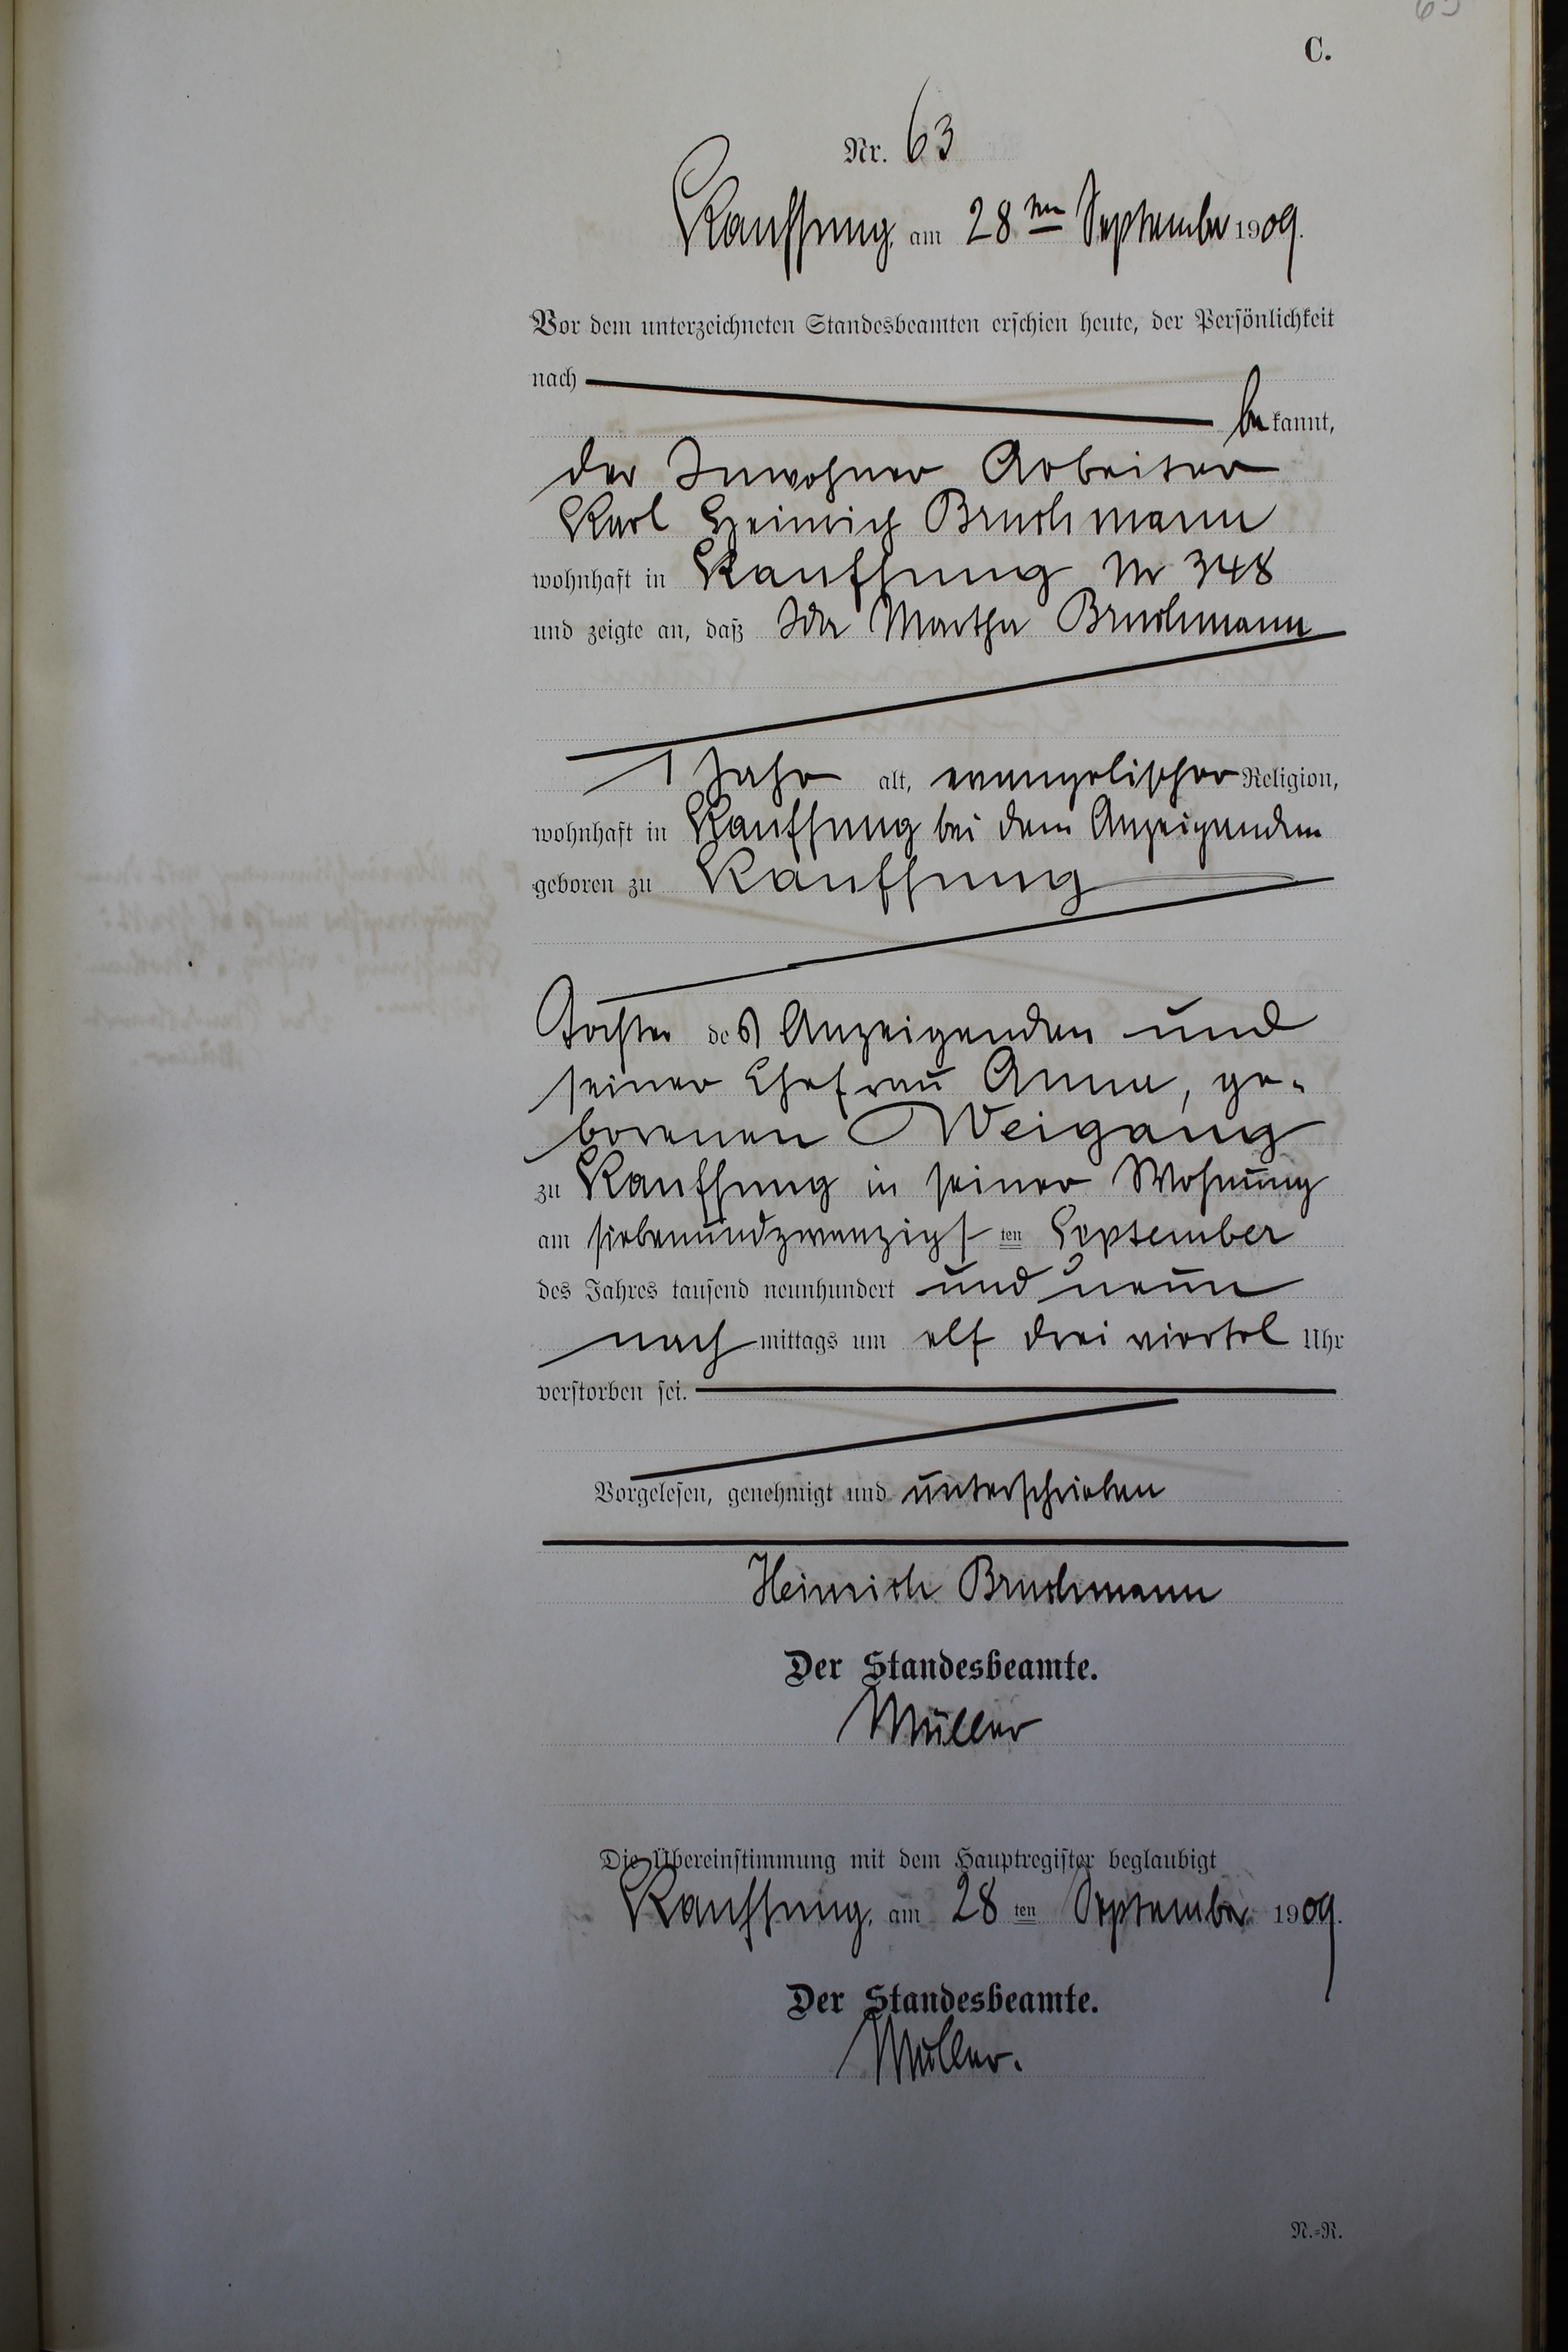 C.
Nr. 63
Kauffung, am 28ten September 1909.
Vor dem unterzeichneten Standesbeamten erschien heute, der Persönlichkeit
nach
bekannt,
der Inwohner Arbeiter
Karl Heinrich Bruchmann
wohnhaft in Kauffung Nr 348
und zeigte an, daß Ida Martha Bruchmann
1 Jahr alt, evangelischer Religion,
wohnhaft in Kauffung bei dem Anzeigenden
geboren zu Kauffung
Tochter des Anzeigenden und
seiner Ehefrau Anna, ge-
borenen Weigang
zu Kauffung in seiner Wohnung
am siebenundzwanzigsten September
des Jahres tausend neunhundert und neun
nachmittags um elf drei viertel Uhr
verstorben sei.
Vorgelesen, genehmigt und unterschrieben
Heinrich Bruchmann
Der Standesbeamte.
Müller
Die Übereinstimmung mit dem Hauptregister beglaubigt
Kauffung, am 28ten September 1909.
Der Standesbeamte.
Müller.
N.-R.